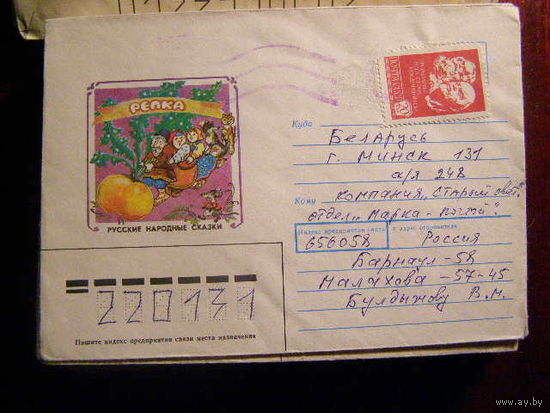 РЕПКА
РУССКИЕ НАРОДНЫЕ СКАЗКИ
ПОЧТА СССР
Куда
Беларусь
г. Минск 131
а/я 248
Кому
компания „Старый свет"
отдел „Марка-почтой".
Индекс предприятия связи и адрес отправителя
656058
Россия
Барнаул-58
Малахова-57-45
Булдыжову В.М.
220131
Пишите индекс предприятия связи места назначения
www.ay.by